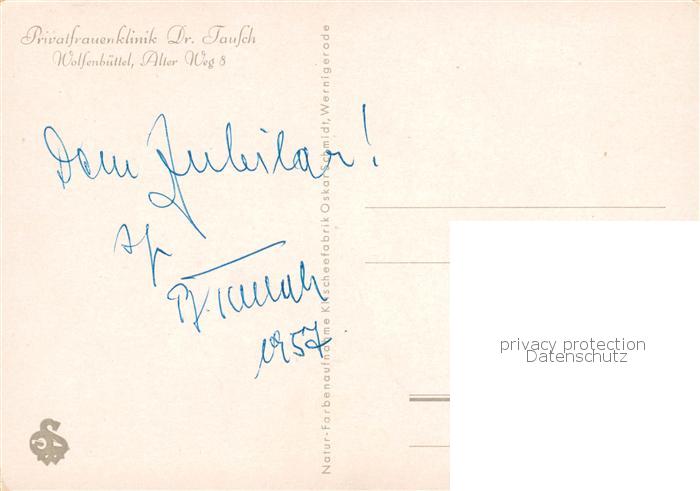 Privatfrauenklinik Dr. Tausch
Wolfenbüttel, Alter Weg 8
Dem Jubilar!
1957
Natur-Farbenaufnahme Klischeefabrik Oskar Schmidt, Wernigerode
privacy protection
Datenschutz